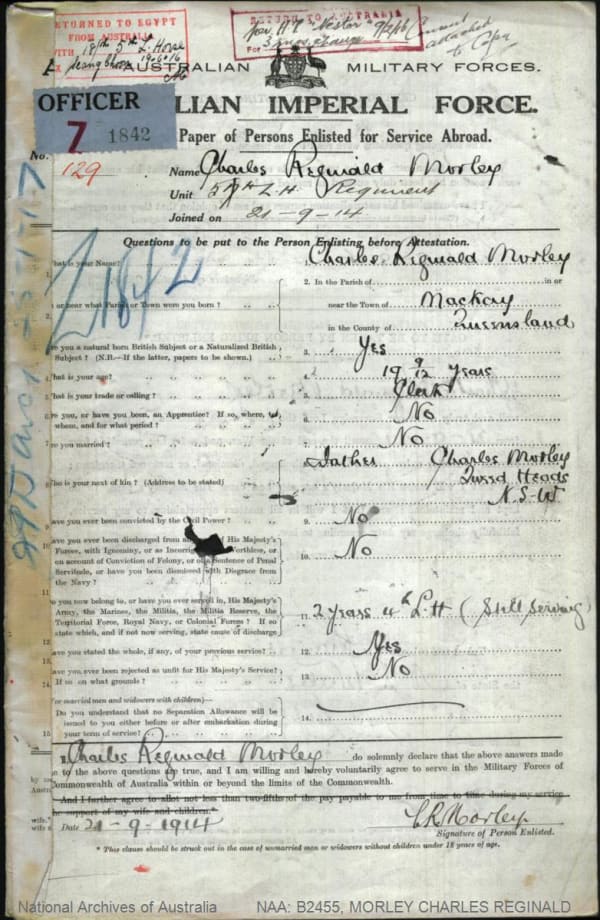 RETURNED TO EGYPT
FROM AUSTRALIA
WITH 18th 5th L. Horse
EX 19.6.16
RETURN TO AUSTRALIA
Per H.T. Nestor 9/2/16
FOR 3 mos. change
attached
to Copy
AUSTRALIAN MILITARY FORCES.
OFFICER
7 1842
LIAN IMPERIAL FORCE.
Paper of Persons Enlisted for Service Abroad.
No. 129
Name Charles Reginald Morley
Unit 5th L.H. Regiment
Joined on 21-9-14
Questions to be put to the Person Enlisting before Attestation.
hat is your Name? 1. Charles Reginald Morley
2. In the Parish of in or
or near what Parish or Town were you born? near the Town of Mackay
in the County of Queensland
21842
re you a natural born British Subject or a Naturalized British
Subject? (N.B.—If the latter, papers to be shown.) 3. Yes
hat is your age? 4. 19 9/12 Years
hat is your trade or calling? 5. Clerk
re you, or have you been, an Apprentice? If so, where, to
whom, and for what period? 6. No
re you married? 7. No
ho is your next of kin? (Address to be stated) 8. Father Charles Morley
Tweed Heads
N.S.W.
ave you ever been convicted by the Civil Power? 9. No
ave you ever been discharged from any of His Majesty's
Forces, with Ignominy, or as Incorrigible Worthless, or
on account of Conviction of Felony, or of a Sentence of Penal
Servitude, or have you been dismissed with Disgrace from
the Navy? 10. No
o you now belong to, or have you ever served in, His Majesty's
Army, the Marines, the Militia, the Militia Reserve, the
Territorial Force, Royal Navy, or Colonial Forces? If so
state which, and if not now serving, state cause of discharge
11. 2 years 4th L.H (Still Serving)
ave you stated the whole, if any, of your previous service? 12. Yes
ave you ever been rejected as unfit for His Majesty's Service?
If so on what grounds? 13. No
or married men and widowers with children)—
Do you understand that no Separation Allowance will be
issued to you either before or after embarkation during
your term of service? 14.
Charles Reginald Morley do solemnly declare that the above answers made
e to the above questions are true, and I am willing and hereby voluntarily agree to serve in the Military Forces of
Commonwealth of Australia within or beyond the limits of the Commonwealth.
And I further agree to allot not less than two-fifths of the pay payable to me from time to time during my service
he support of my wife and children.*
C R Morley
Date 21-9-1914
Signature of Person Enlisted.
* This clause should be struck out in the case of unmarried men or widowers without children under 18 years of age.
National Archives of Australia NAA: B2455, MORLEY CHARLES REGINALD